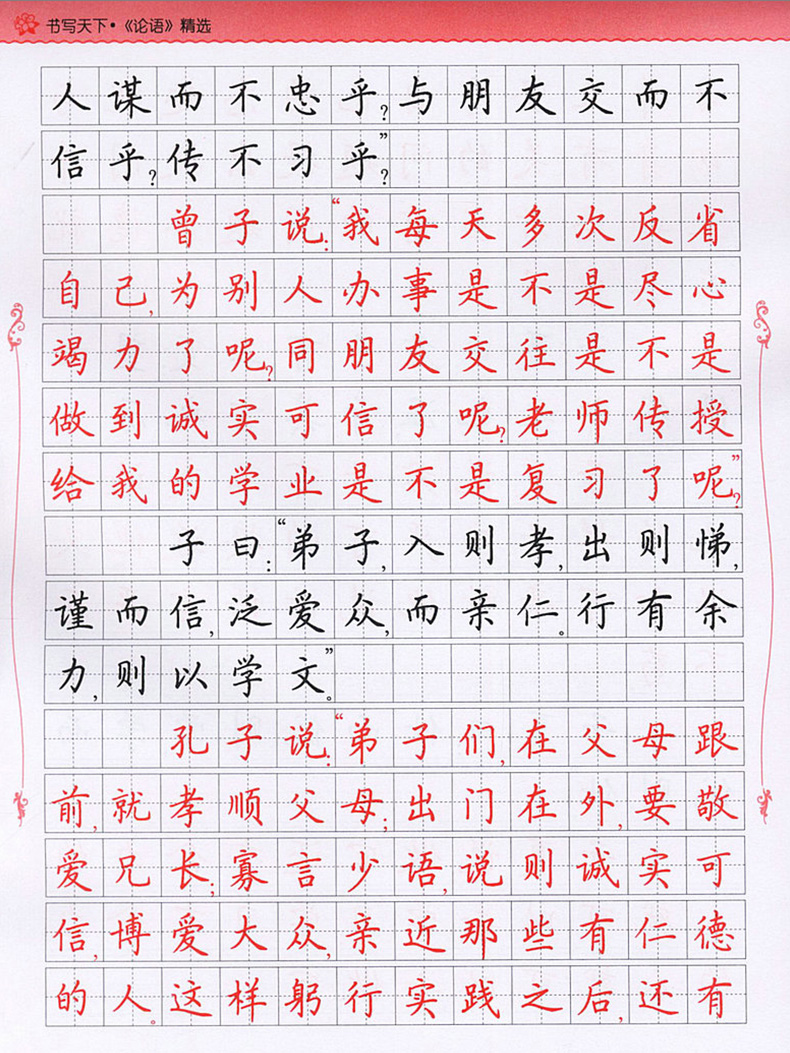 书写天下•《论语》精选
人谋而不忠乎？与朋友交而不
信乎？传不习乎？”
曾子说：“我每天多次反省
自己，为别人办事是不是尽心
竭力了呢？同朋友交往是不是
做到诚实可信了呢？老师传授
给我的学业是不是复习了呢？”
子曰：“弟子，入则孝，出则悌，
谨而信，泛爱众，而亲仁。行有余
力，则以学文。”
孔子说：“弟子们，在父母跟
前，就孝顺父母；出门在外，要敬
爱兄长；寡言少语，说则诚实可
信，博爱大众，亲近那些有仁德
的人。这样躬行实践之后，还有